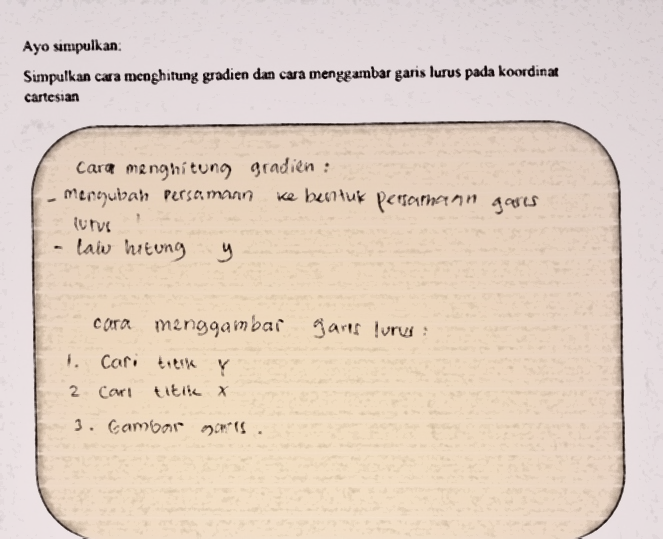 Ayo simpulkan:
Simpulkan cara menghitung gradien dan cara menggambar garis lurus pada koordinat
cartesian
Cara menghitung gradien :
- mengubah persamaan ke bentuk persamaan garis
lurus
- lalu hitung y
cara menggambar garis lurus :
1. Cari titik y
2 Cari titik x
3. Gambar garis.